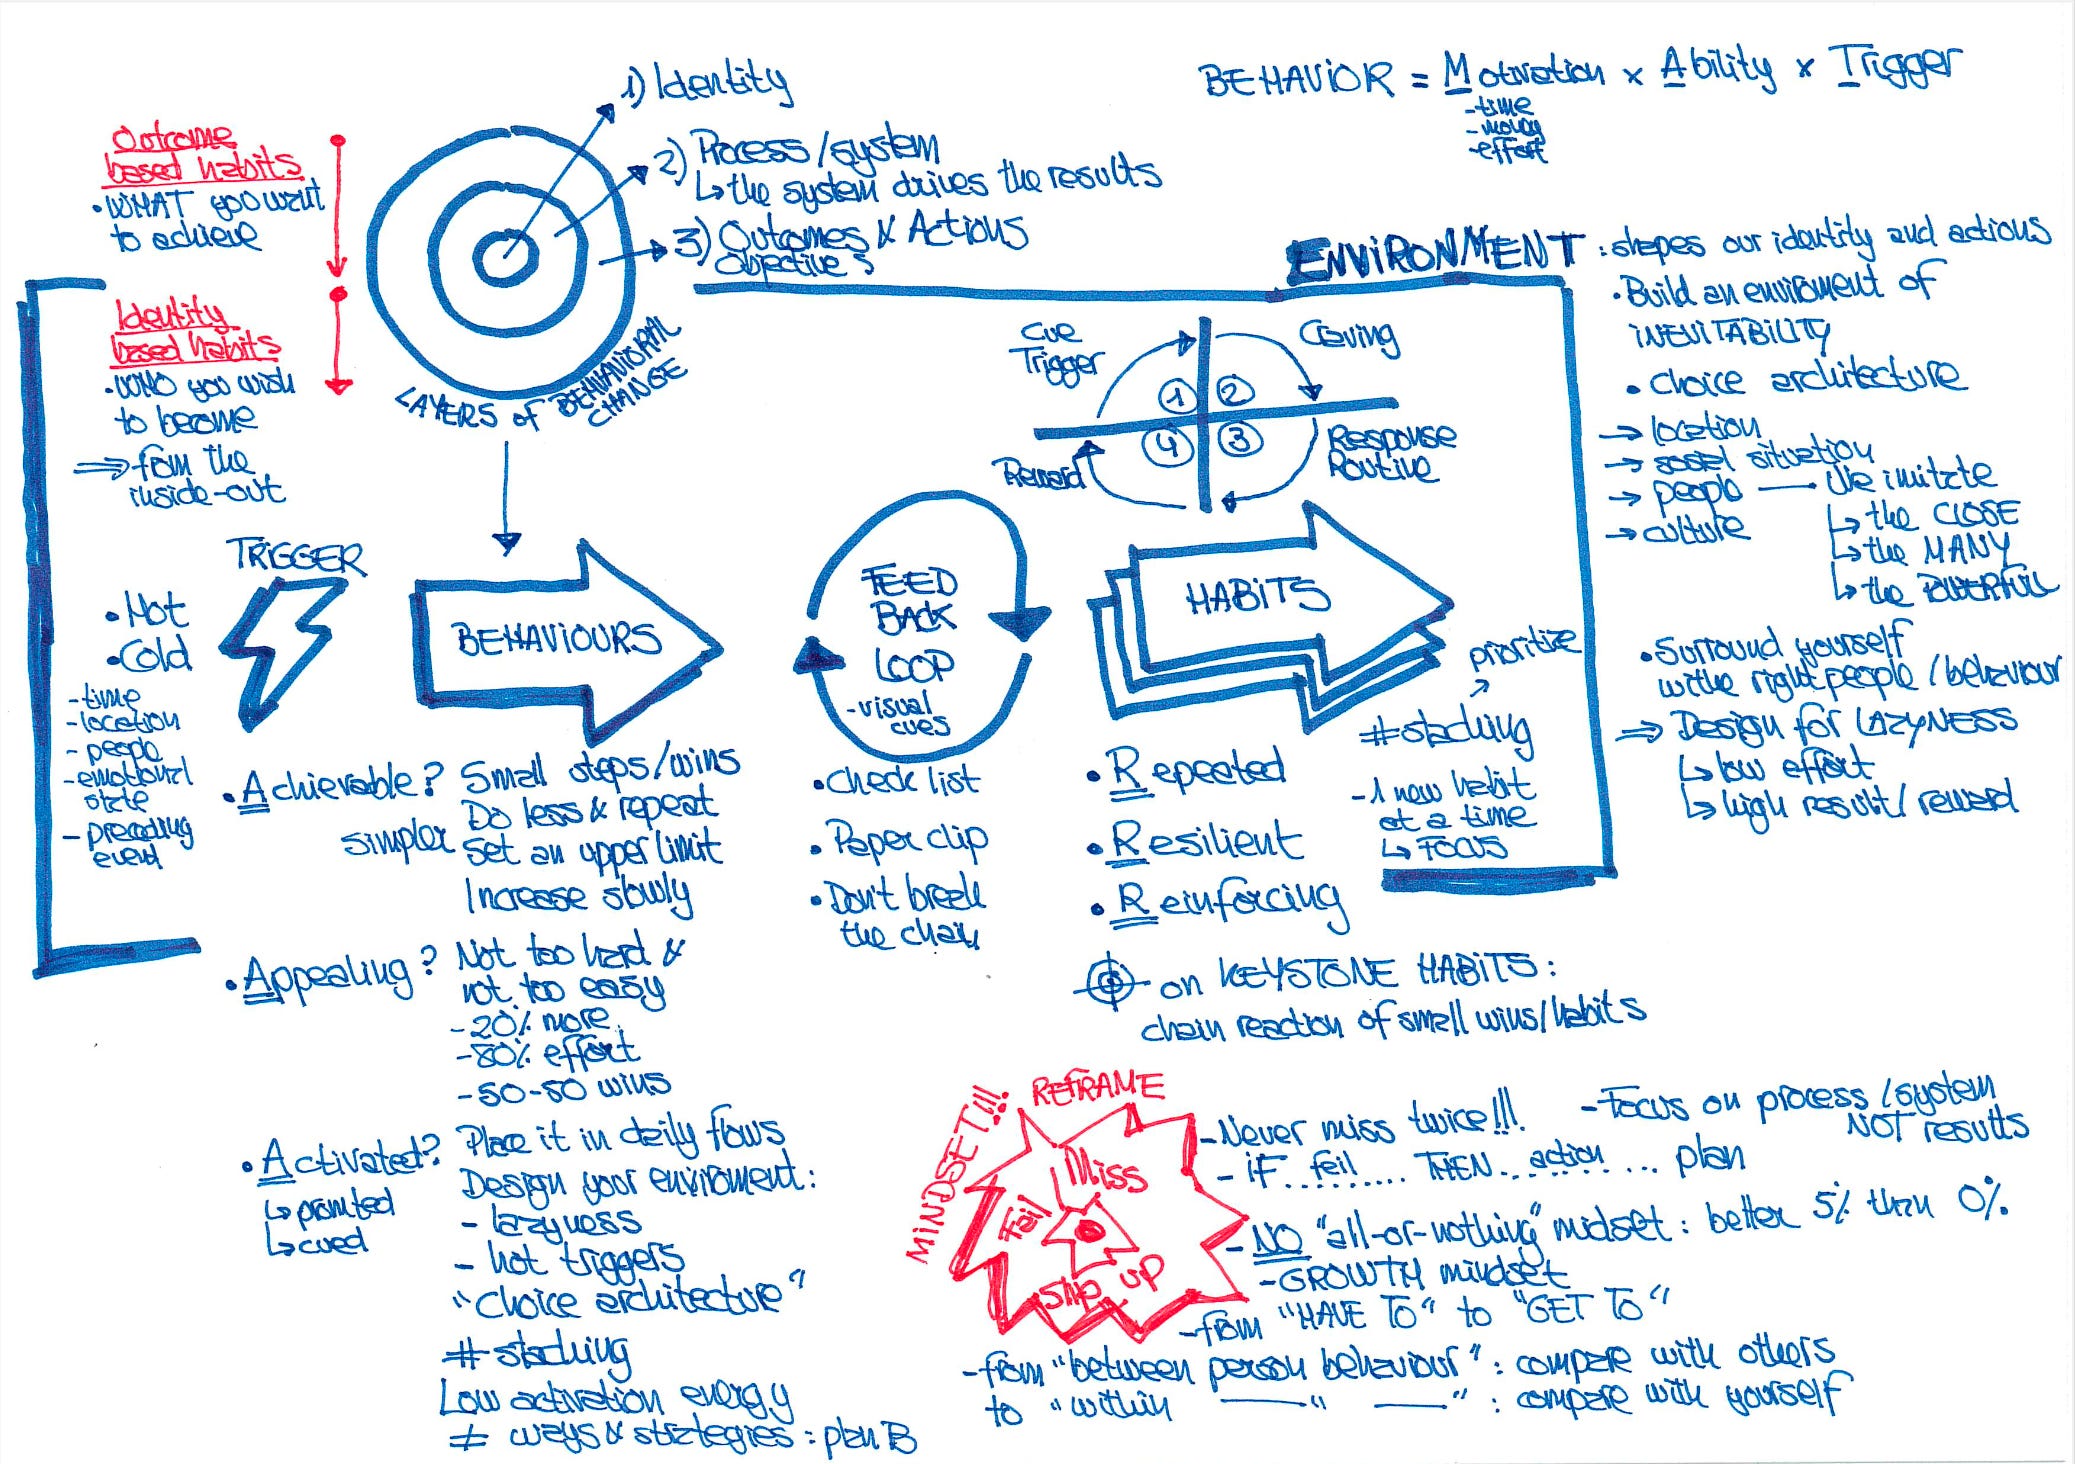 1) Identity
2) Process/system
↳ the system drives the results
3) Outcomes & Actions
Objectives
LAYERS of BEHAVIORAL
CHANGE
BEHAVIOR = Motivation x Ability x Trigger
- time
- money
- effort
Outcome
based habits
• WHAT you want
to achieve
Identity
based habits
• WHO you wish
to become
⇒ from the
inside-out
ENVIRONMENT : shapes our identity and actions
• Build an enviroment of
INEVITABILITY
• choice architecture
→ location
→ social situation
→ people — We imitate
↳ the CLOSE
↳ the MANY
↳ the POWERFUL
→ culture
• Surround yourself
withe right people / behaviour
⇒ Design for LAZYNESS
↳ low effort
↳ high result/reward
Cue
Trigger
Craving
1
2
4
3
Reward
Response
Routine
TRIGGER
• Hot
• Cold
- time
- location
- people
- emotional
state
- preceding
event
BEHAVIOURS
• Achievable? Small steps/wins
Do less & repeat
simpler Set an upper limit
Increase slowly
• Appealing? Not too hard &
not too easy
- 20% more
- 80% effort
- 50-50 wins
• Activated? Place it in daily flows
↳ promted
↳ cued
Design your enviroment:
- lazyness
- hot triggers
"Choice architecture"
# stacking
Low activation energy
≠ ways & strategies : plan B
FEED
BACK
LOOP
- visual
cues
• Check list
• Paper clip
• Don't break
the chain
HABITS
• Repeated
• Resilient
• Reinforcing
prioritize
# stacking
- 1 new habit
at a time
↳ FOCUS
on KEYSTONE HABITS:
chain reaction of small wins/habits
MINDSET!!!
REFRAME
Miss
Fail
Slip up
- Never miss twice!!!
- Focus on process/system
NOT results
- IF ..fail.... THEN..action.... plan
- NO "all-or-nothing" midset : better 5% than 0%
- GROWTH mindset
- from "HAVE TO" to "GET TO"
- from "between person behaviour" : compare with others
to "within —— " —— " : compare with yourself